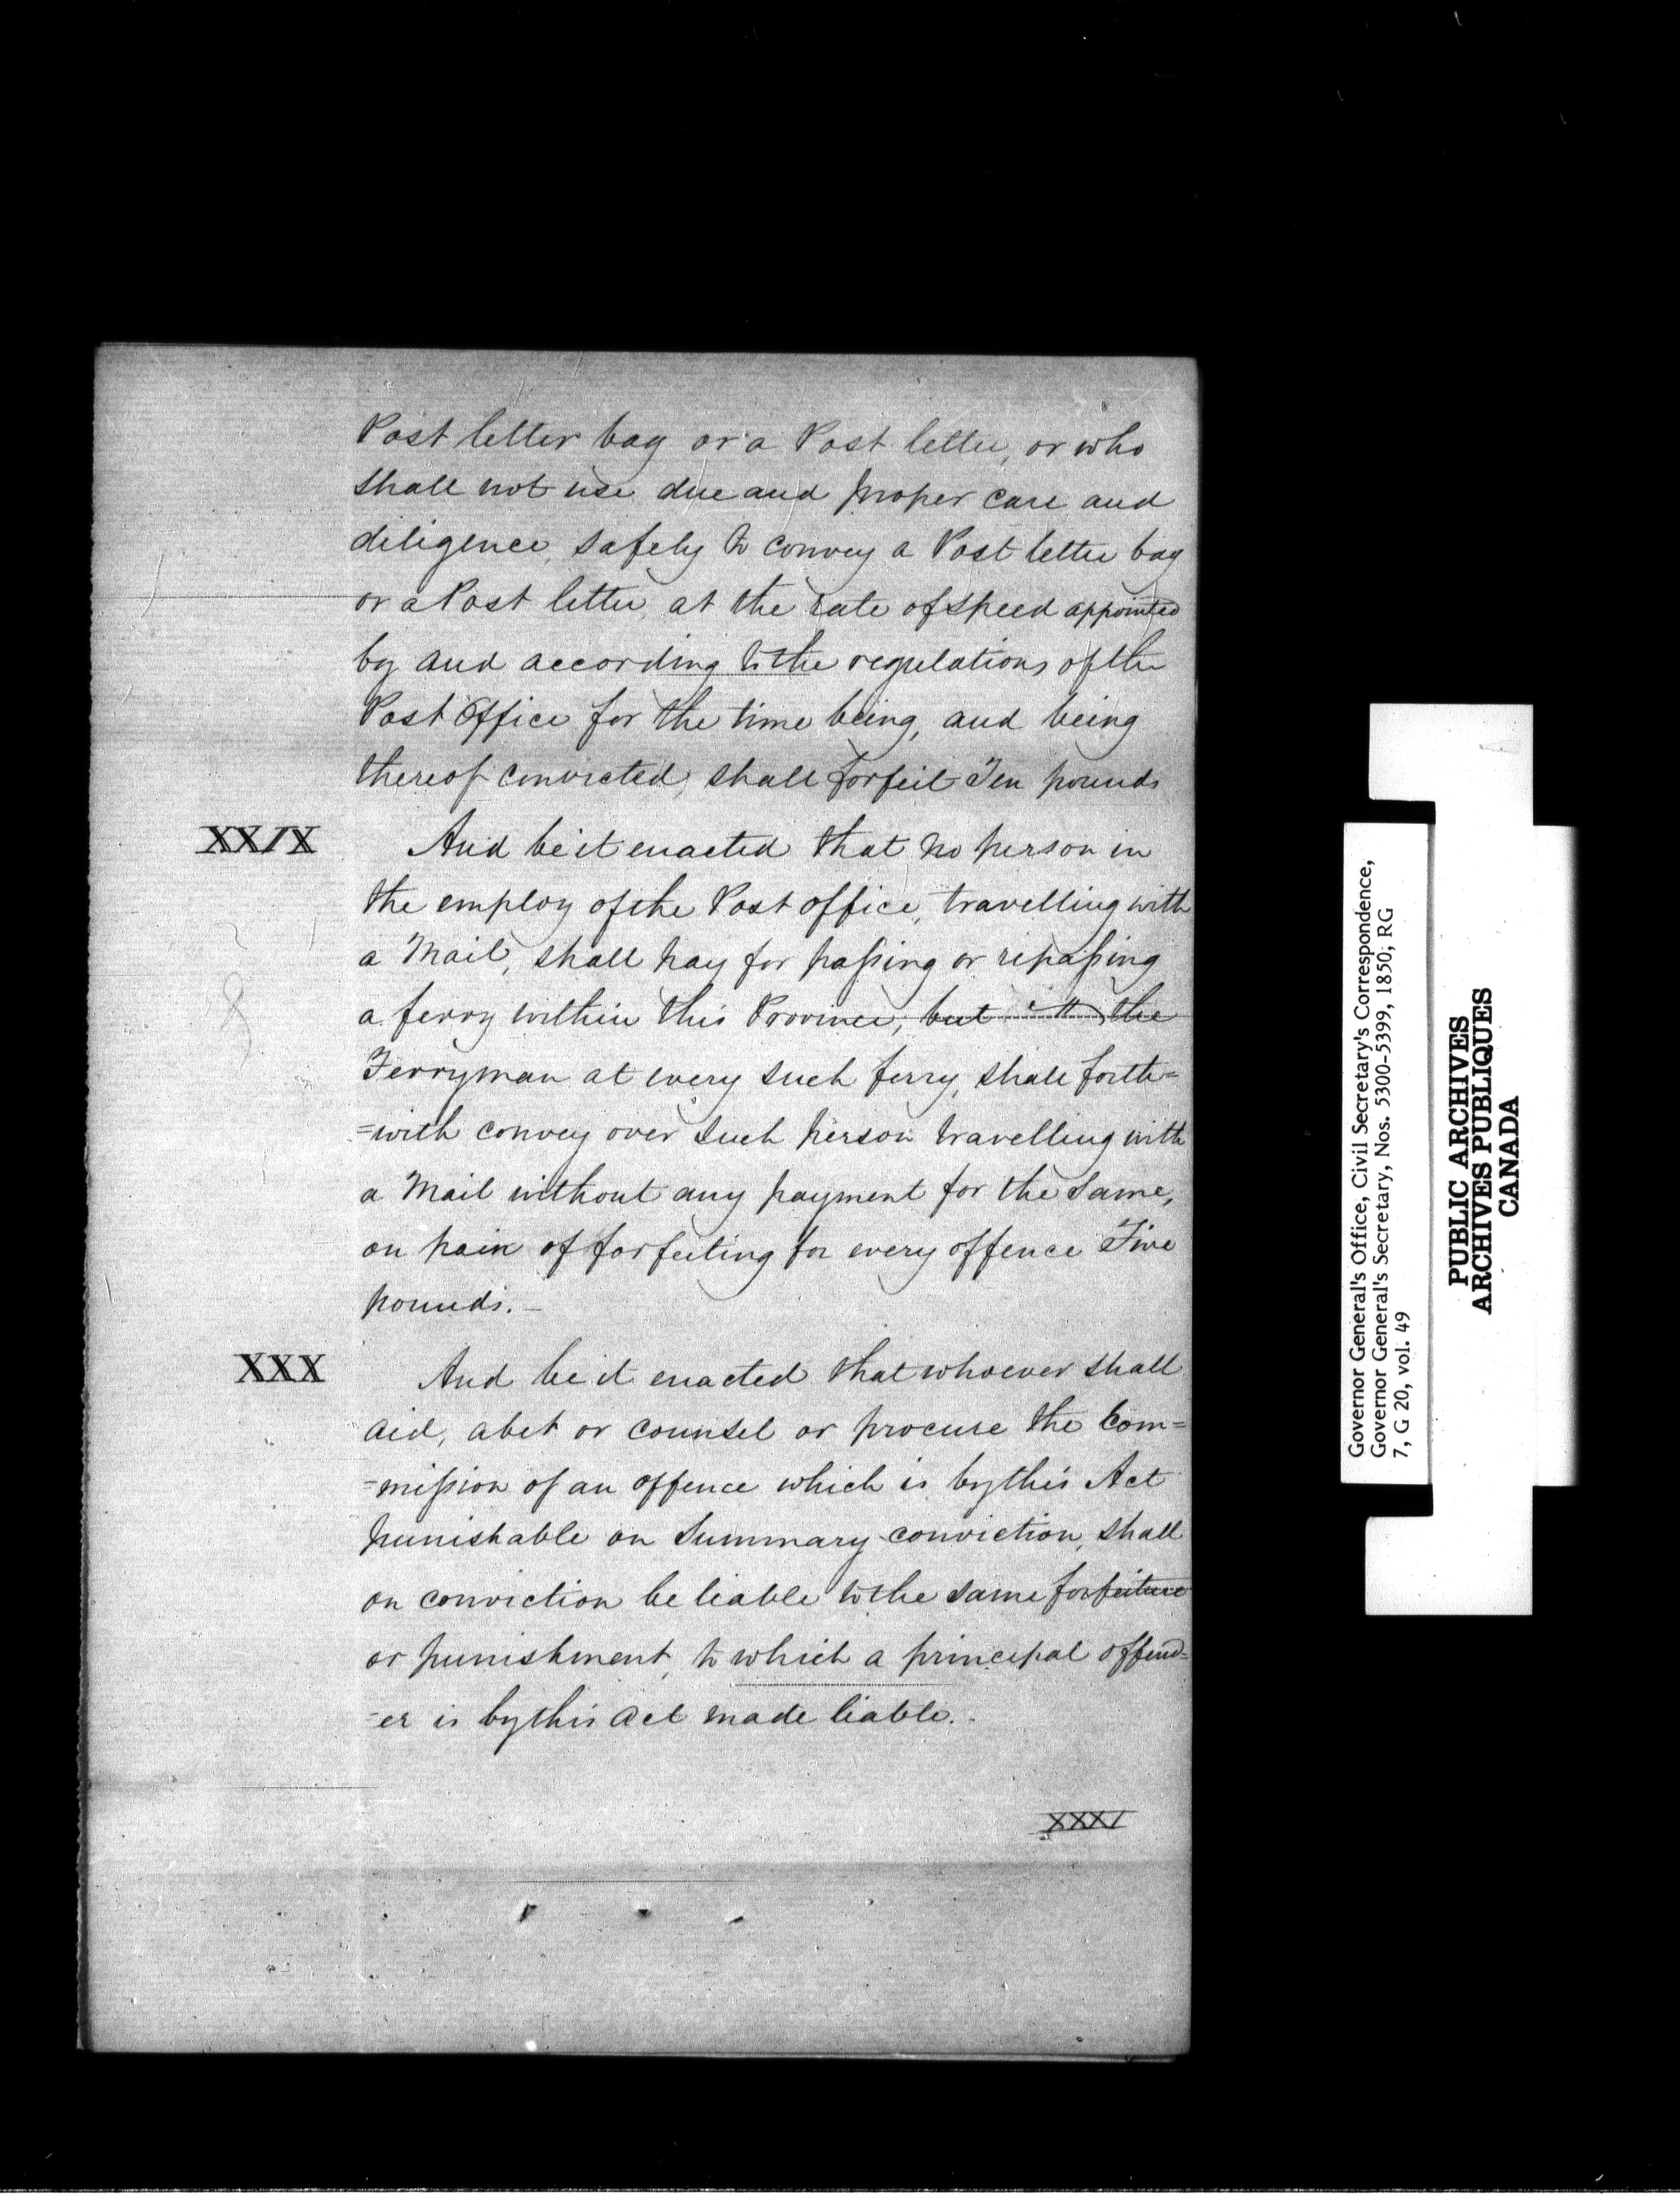 Post letter bag or a Post letter, or who
shall not use due and proper care and
diligence safely to convey a Post letter bag
or a Post letter at the rate of speed appointed
by and according to the regulations of the
Post Office for the time being, and being
thereof convicted, shall forfeit Ten pounds
XXIX
And be it enacted that no person in
the employ of the Post office, travelling with
a Mail, shall pay for passing or repassing
a ferry within this Province, but the
Ferryman at every such ferry, shall forth=
=with convey over such person travelling with
a Mail without any payment for the same,
on pain of forfeiting for every offence Five
pounds. –
XXX
And be it enacted that whoever shall
aid, abet or counsel or procure the com=
=mission of an offence which is by this Act
punishable on Summary conviction, shall
on conviction be liable to the same forfeiture
or punishment, to which a principal offend=
=er is by this act made liable. -
XXXI
Governor General's Office, Civil Secretary's Correspondence,
Governor General's Secretary, Nos. 5300-5399, 1850; RG
7, G 20, vol. 49
PUBLIC ARCHIVES
ARCHIVES PUBLIQUES
CANADA